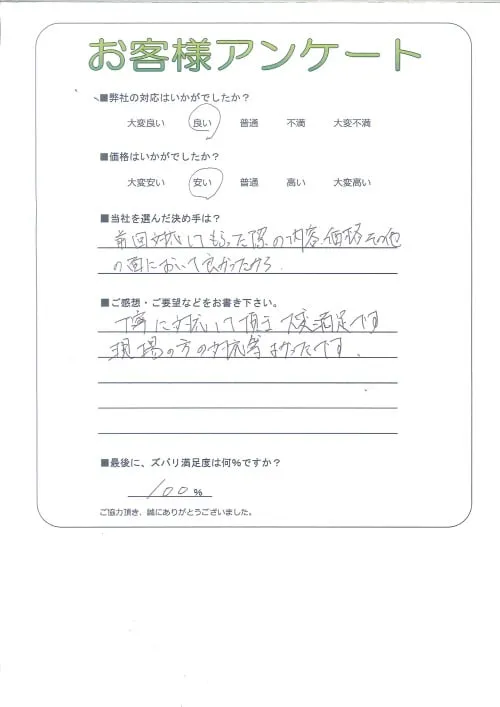 お客様アンケート
■弊社の対応はいかがでしたか?
大変良い 良い 普通 不満 大変不満
■価格はいかがでしたか?
大変安い 安い 普通 高い 大変高い
■当社を選んだ決め手は?
前回対応してもらった際の内容、価格その他
の面において良かったから.
■ご感想・ご要望などをお書き下さい。
丁寧に対応して頂き大変満足です
現場の方の対応等よかったです.
■最後に、ズバリ満足度は何%ですか?
100 %
ご協力頂き、誠にありがとうございました。